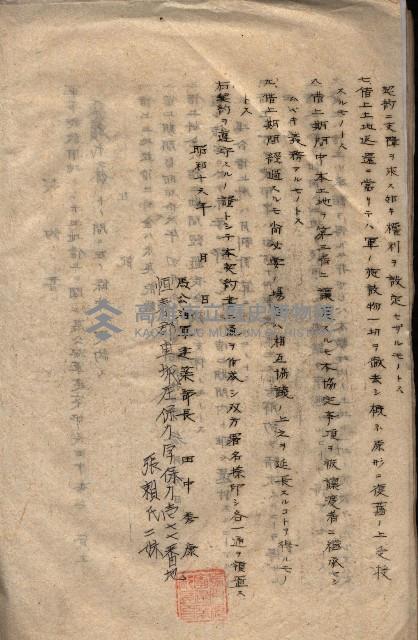 契約ニ支障ヲ来ス如キ權利ヲ設定セザルモノトス
七、借上土地返還ニ當リテハ軍ノ施散物一切ヲ撤去シ概ネ原形ニ復舊ノ上受授
スルモノトス
八、借上期間中本土地ヲ第三者ニ讓渡スルモ本協定事項ヲ被讓渡者ニ繼承セシ
ムベキ義務アルモノトス
九、借上期間經過スルモ尚必要ノ場合ハ相互協議ノ上之ヲ延長スルコトヲ得ルモノ
トス
右契約ヲ遵守スルノ證トシテ本契約書 通ヲ作成シ双方署名捺印シ各一通ヲ領置ス
昭和十六年 月 日
馬公海軍建築部長 田中秀康
恒春郡車城庄保力字保力 番地
張賴氏二妹
高雄市立歷史博物館
KAOHSIUNG MUSEUM OF HISTORY